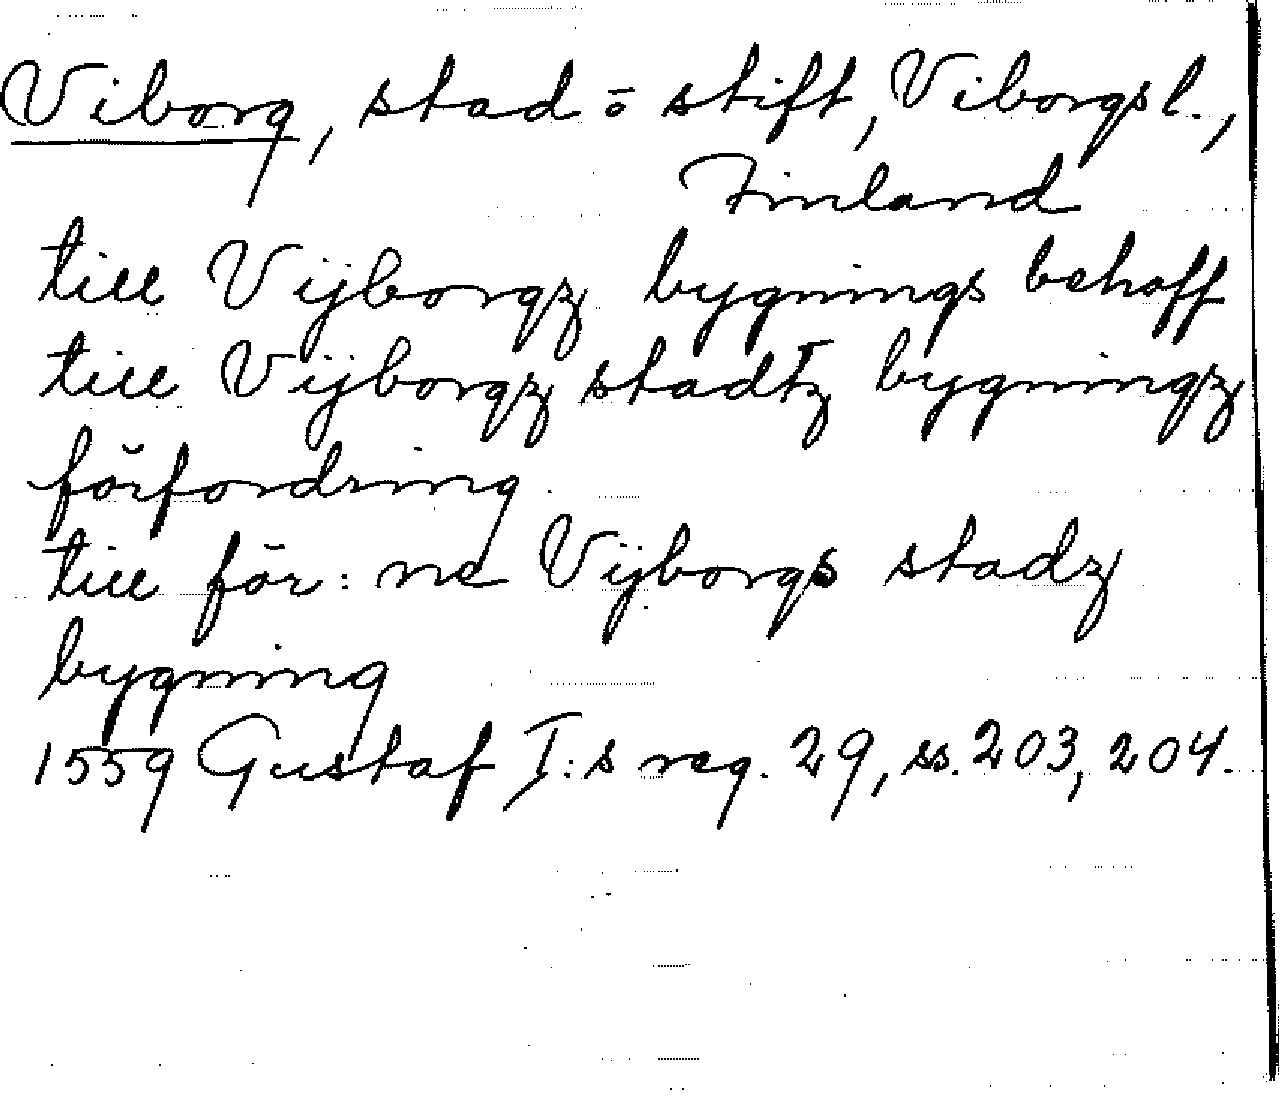 Viborg, stad ō stift, Viborgsl.,
Finland
till Vijborgz bygnings behoff
till Vijborgz stadtz bygningz
förfordring
till för: ne Vijborgs stadz
bygning
1559 Gustaf I:s reg. 29, ss. 203, 204.